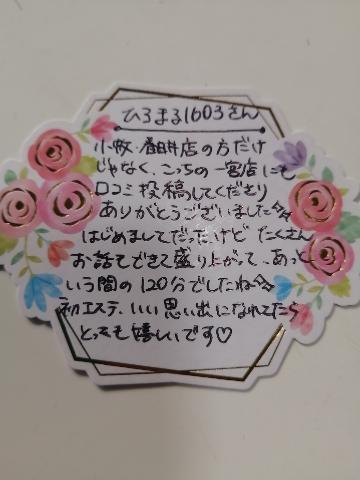 ひろまる1603さん
小牧・春日井店の方だけ
じゃなく、こっちの一宮店にも
口コミ投稿してくださり
ありがとうございました
はじめましてだったけど たくさん
お話できて盛り上がって、あっと
いう間の120分でしたね
初エステ、いい思い出になれてたら
とっても嬉しいです♡